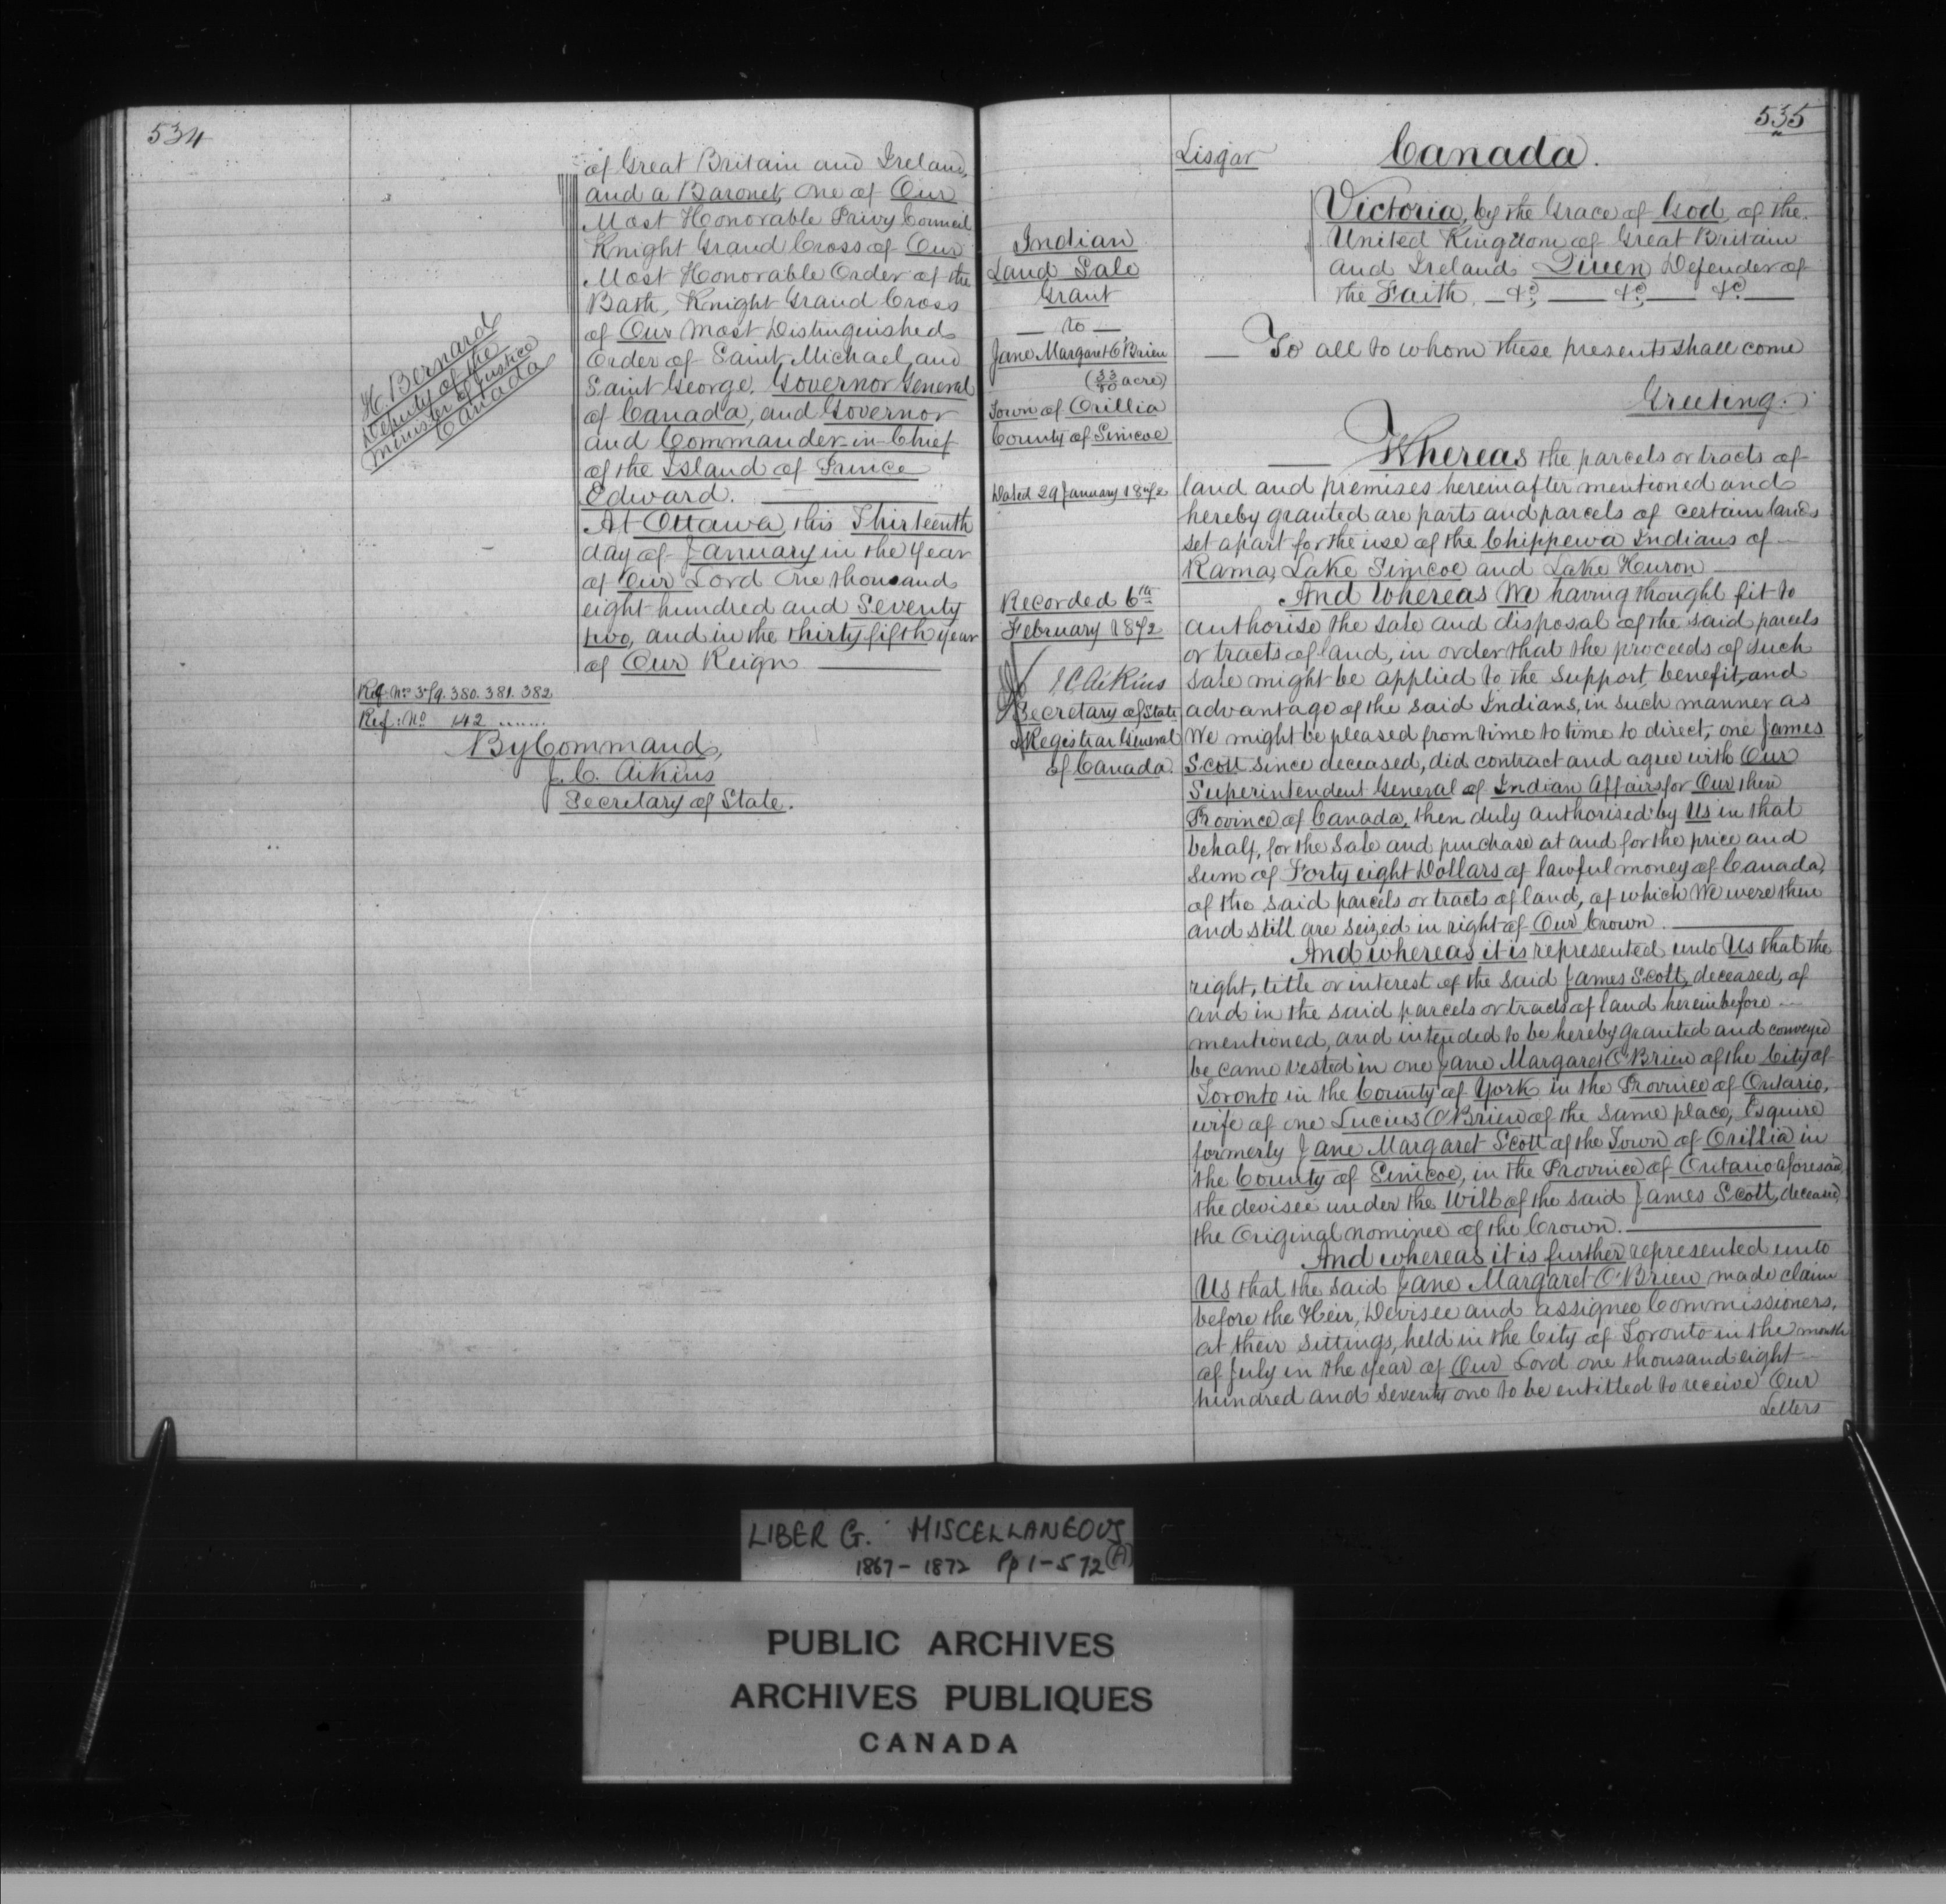 534
of Great Britain and Ireland,
and a Baronet, one of Our
Most Honorable Privy Council
Knight Grand Cross of Our
Most Honorable Order of the
Bath, Knight Grand Cross
of Our Most Distinguished
Order of Saint Michael and
Saint George. Governor General
of Canada, and Governor
and Commander-in-Chief
of the Island of Prince
Edward.
At Ottawa, this Thirteenth
day of January in the Year
of Our Lord One thousand
eight hundred and Seventy
two, and in the thirty fifth year
of Our Reign
H. Bernard
Deputy of the
Minister of Justice
Canada
Ref. No 379. 380. 381. 382
Ref: No 142 .......
By Command,
J. C. Aikins
Secretary of State.
535
Lisgar
Canada.
Victoria, by the Grace of God, of the
United Kingdom of Great Britain
and Ireland Queen Defender of
the Faith — &c — &c — &c —
To all to whom these presents shall come
Greeting:
Indian
Land Sale
Grant
— to —
Jane Margaret O'Brien
(33/80 acre)
Town of Orillia
County of Simcoe
Dated 29 January 1872
Recorded 6th
February 1872
J C Aikins
Secretary of State
& Registrar General
of Canada.
Whereas the parcels or tracts of
land and premises hereinafter mentioned and
hereby granted are parts and parcels of certain lands
set apart for the use of the Chippewa Indians of
Rama, Lake Simcoe and Lake Huron
And Whereas We having thought fit to
authorise the sale and disposal of the said parcels
or tracts of land, in order that the proceeds of such
sale might be applied to the support, benefit, and
advantage of the said Indians, in such manner as
We might be pleased from time to time to direct, one James
Scott since deceased, did contract and agree with Our
Superintendent General of Indian Affairs for Our then
Province of Canada, then duly authorised by Us in that
behalf, for the Sale and purchase at and for the price and
sum of Forty eight Dollars of lawful money of Canada,
of the said parcels or tracts of land, of which We were then
and still are seized in right of Our Crown.
And whereas it is represented unto Us that the
right, title or interest of the said James Scott, deceased, of
and in the said parcels or tracts of land hereinbefore
mentioned, and intended to be hereby granted and conveyed
be came vested in one Jane Margaret O'Brien of the City of
Toronto in the County of York in the Province of Ontario,
wife of one Lucius O'Brien of the same place, Esquire
formerly Jane Margaret Scott of the Town of Orillia in
the County of Simcoe, in the Province of Ontario aforesaid,
the devisee under the Will of the said James Scott, deceased,
the Original nominee of the Crown.
And whereas it is further represented unto
Us that the said Jane Margaret O'Brien made claim
before the Heir, Devisee and assignee Commissioners,
at their sittings, held in the City of Toronto in the month
of July in the year of Our Lord one thousand eight
hundred and seventy one to be entitled to receive Our
Letters
LIBER G. MISCELLANEOUS
1867 - 1872 Pp 1-572 (A)
PUBLIC ARCHIVES
ARCHIVES PUBLIQUES
CANADA